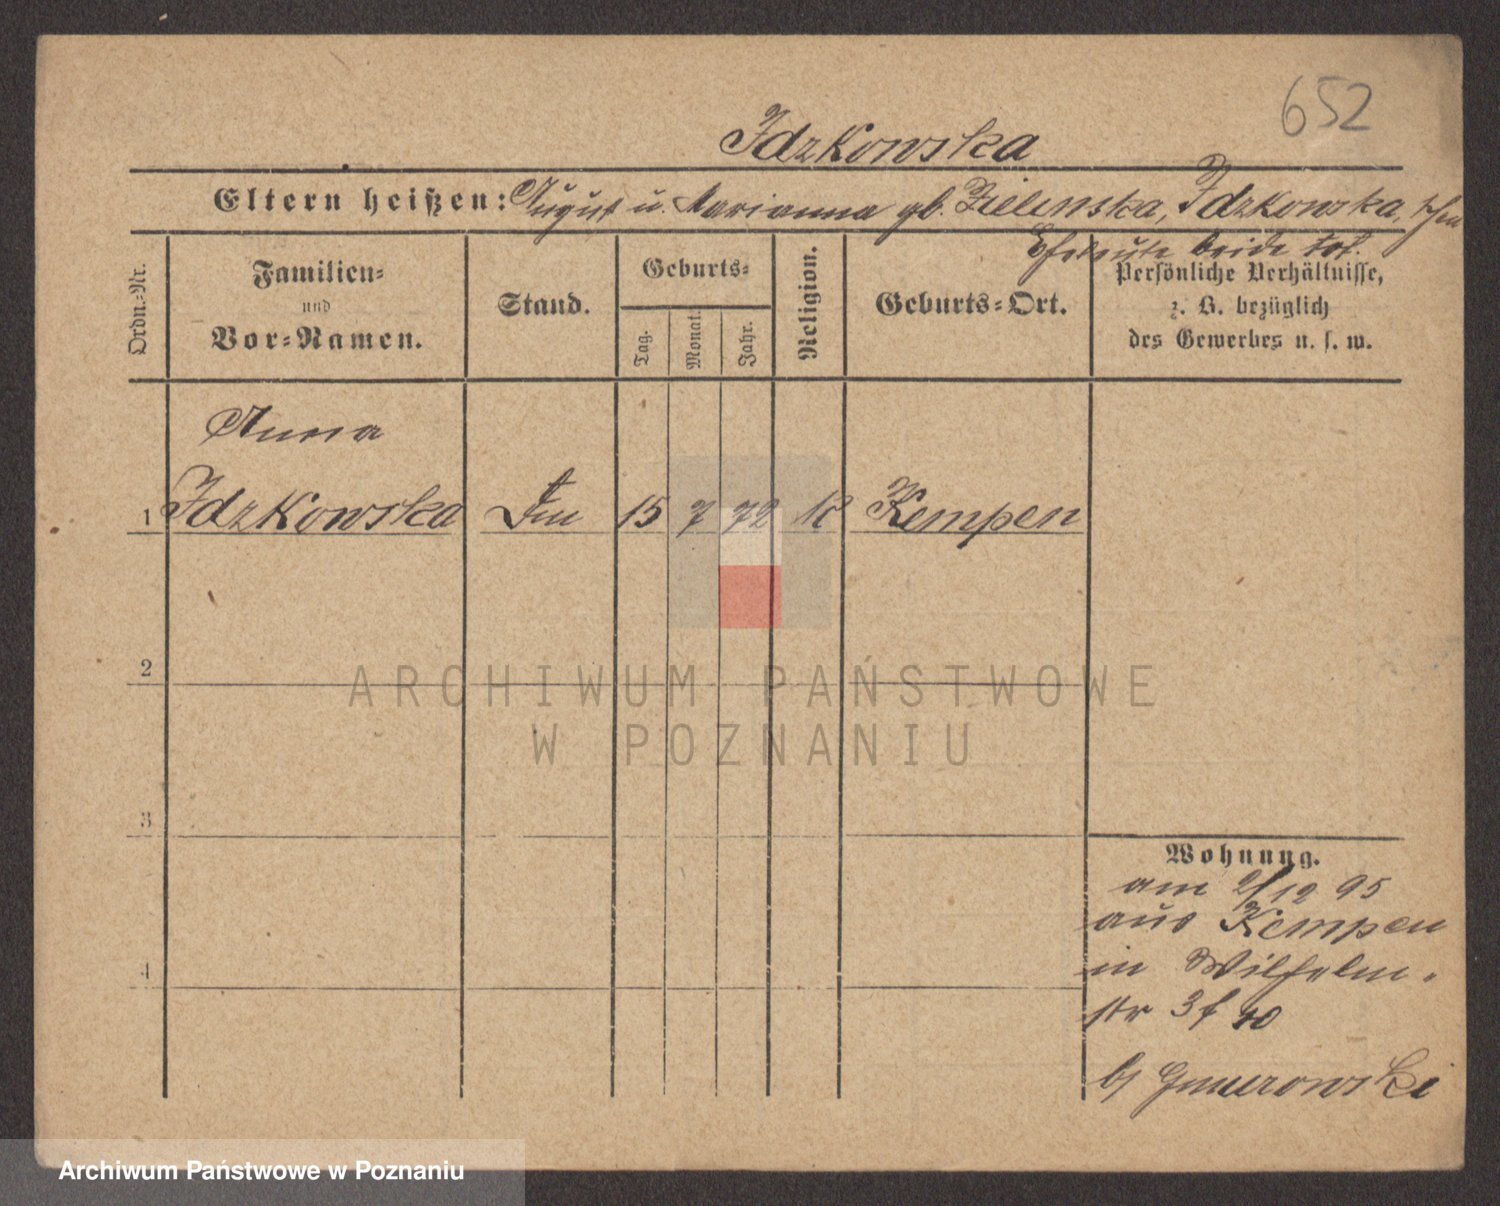 652
Idzkowska
Eltern heißen: August u. Marianna gb. Zielinska, Idzkowska,
Eheleute beide tot.
Ordn.-Nr.
Familien-
und
Vor-Namen.
Stand.
Geburts-
Tag.
Monat.
Jahr.
Religion.
Geburts-Ort.
Persönliche Verhältnisse,
z. B. bezüglich
des Gewerbes u. s. w.
Anna
1 Idzkowska 15 7 72 K Kempen
2
ARCHIWUM PAŃSTWOWE
W POZNANIU
3
4
Wohnung.
am 2/12 95
aus Kempen
in Wilhelm-
str
b/
Archiwum Państwowe w Poznaniu